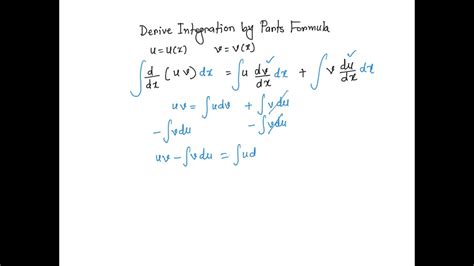 Derive Integration by Parts Formula
u = u(x) v = v(x)
∫ d/dx (uv) dx = ∫ u dv/dx dx + ∫ v du/dx dx
uv = ∫ u dv + ∫ v du
- ∫ v du - ∫ v du
uv - ∫ v du = ∫ u d